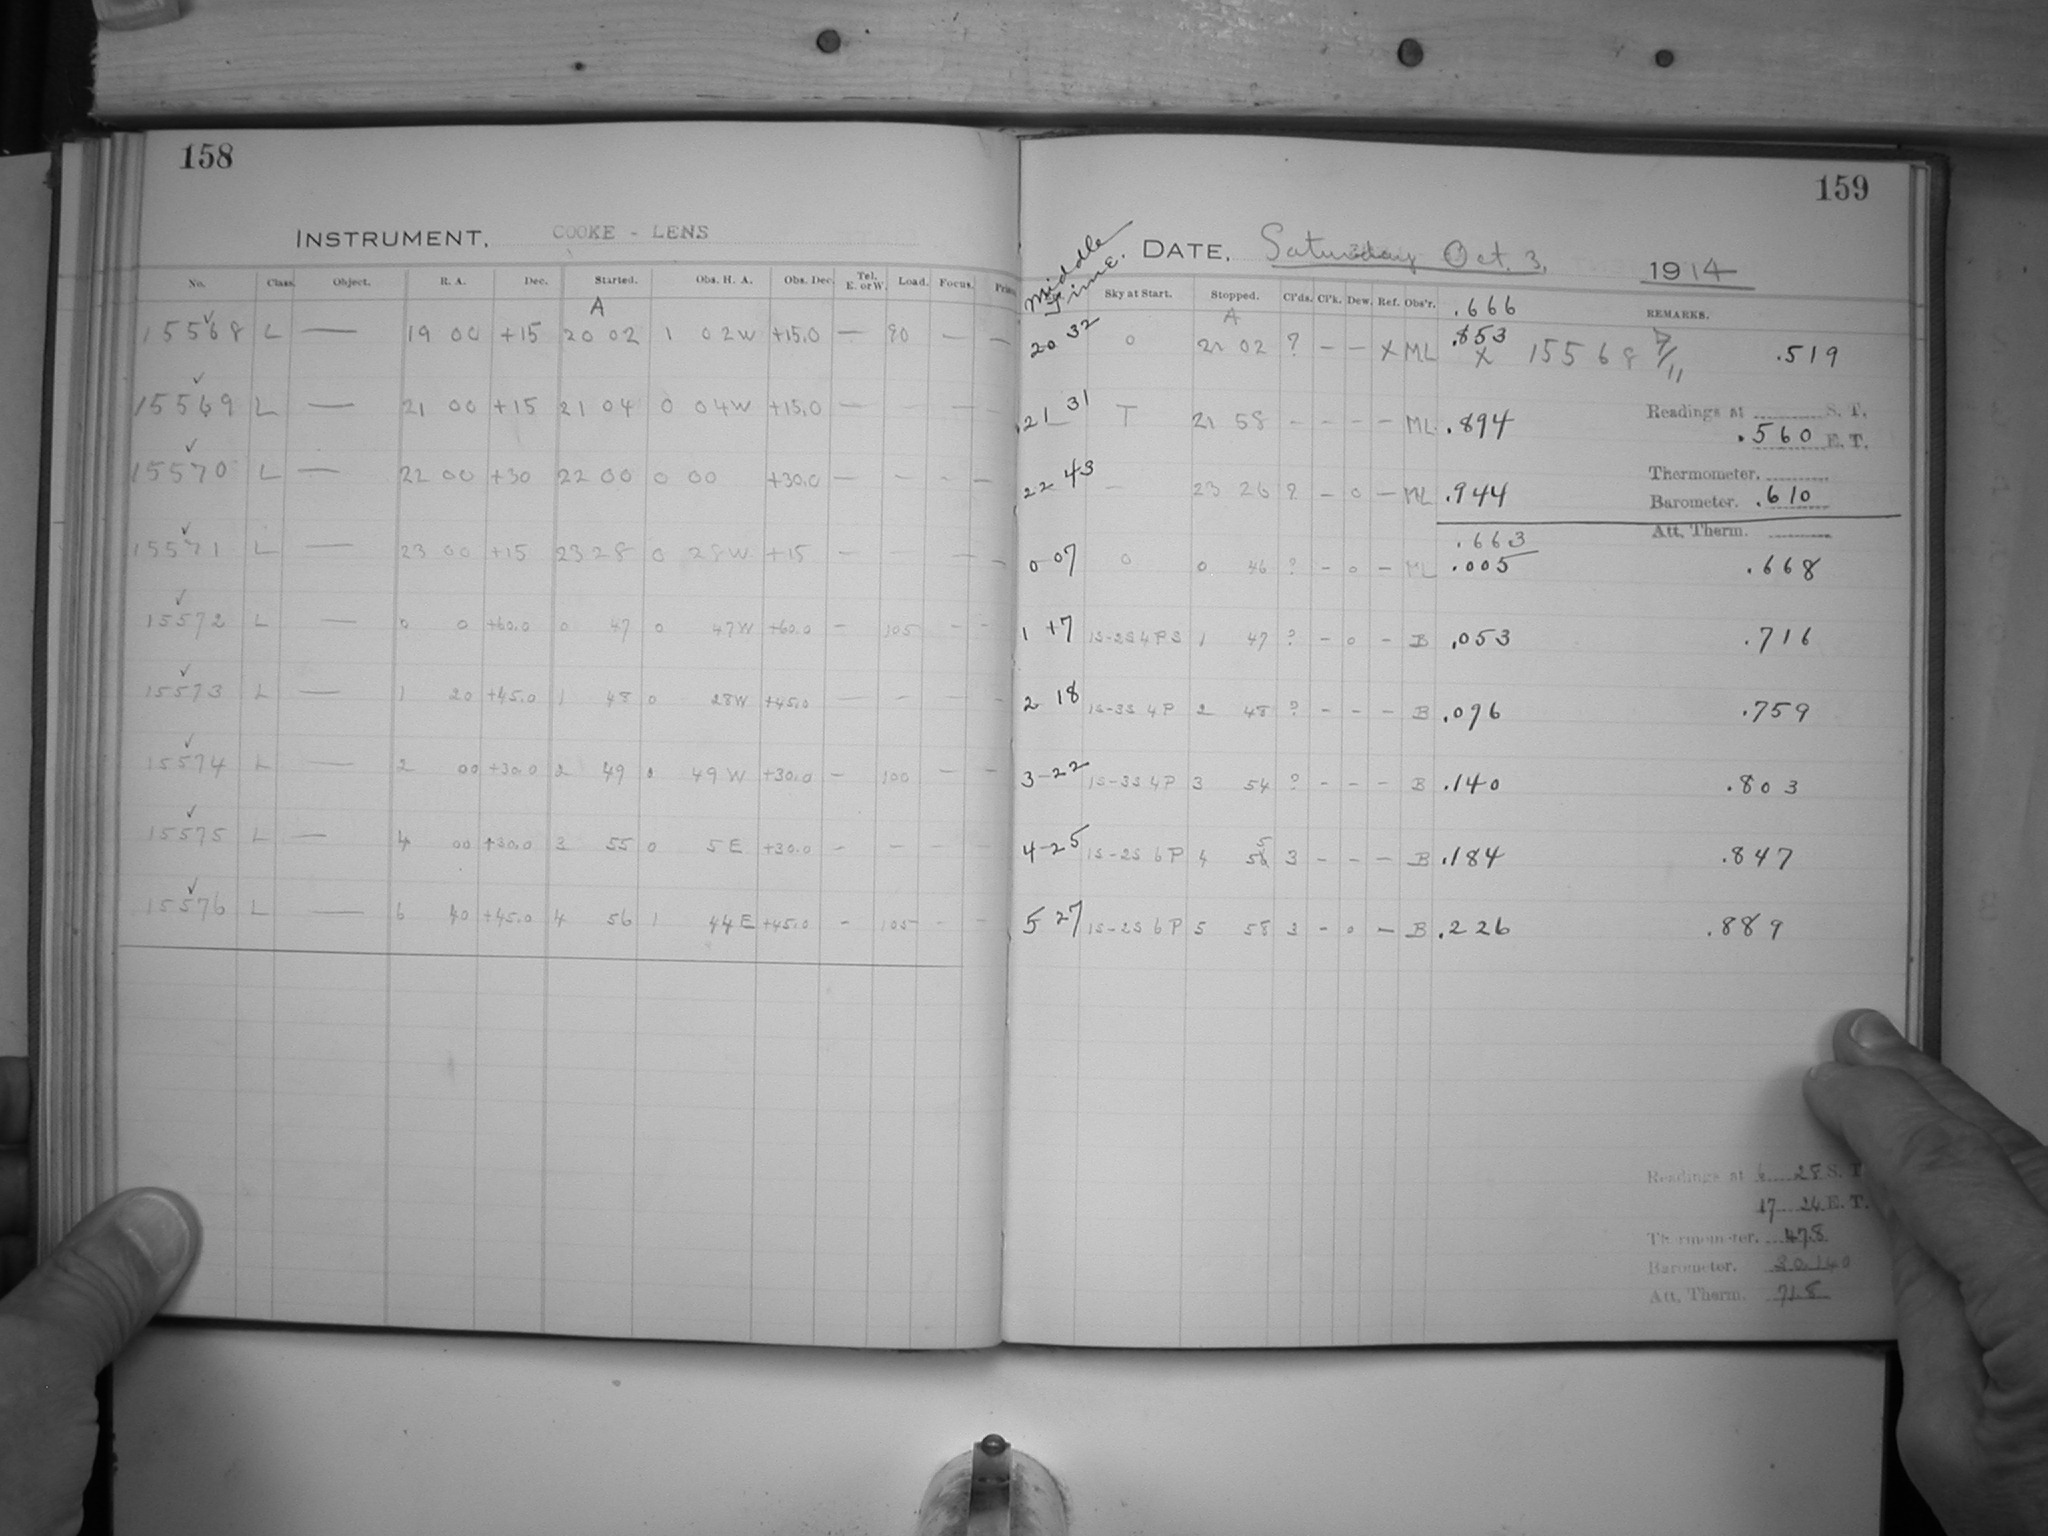 158
INSTRUMENT. COOKE - LENS
No. Class. Object. R. A. Dec. Started. Obs. H. A. Obs. Dec. Tel. E. or W. Load. Focus.
A
15568 L — 19 00 +15 20 02 1 02W +15.0 — 90 — —
15569 L — 21 00 +15 21 04 0 04W +15.0 — — — —
15570 L — 22 00 +30 22 00 0 00 +30.0 — — - —
15571 L — 23 00 +15 23 28 0 28W +15 — — — —
15572 L — 0 0 +60.0 0 47 0 47W +60.0 — 105 — —
15573 L — 1 20 +45.0 1 48 0 28W +45.0 — — — —
15574 L — 2 00 +30.0 2 49 0 49W +30.0 — 100 — —
15575 L — 4 00 +30.0 3 55 0 5E +30.0 — — — —
15576 L — 6 40 +45.0 4 56 1 44E +45.0 — 105 — —
159
Middle Time. DATE. Saturday Oct. 3. 1914
Sky at Start. Stopped. Cl'ds. Cl'k. Dew. Ref. Obs'r. .666 REMARKS.
A
20 32 0 21 02 ? — — X ML .853 X 15568 .519
21 31 T 21 58 - - - — ML .894
Readings at S. T.
.560 E. T.
22 43 — 23 26 ? — 0 — ML .944
Thermometer.
Barometer. .610
Att. Therm.
.663
0 07 0 0 46 ? — 0 — ML .005 .668
1 +7 1S-2S4PS 1 47 ? — 0 — B .053 .716
2 18 1S-3S 4P 2 48 ? — — — B .096 .759
3-22 1S-3S4P 3 54 ? — — — B .140 .803
4-25 1S-2S 6P 4 55 3 — — — B .184 .847
5 27 1S-2S 6P 5 58 3 — 0 — B .226 .889
Readings at 6 28 S. T.
17 24 E. T.
Thermometer. 47.8
Barometer. 30.140
Att. Therm. 71.8